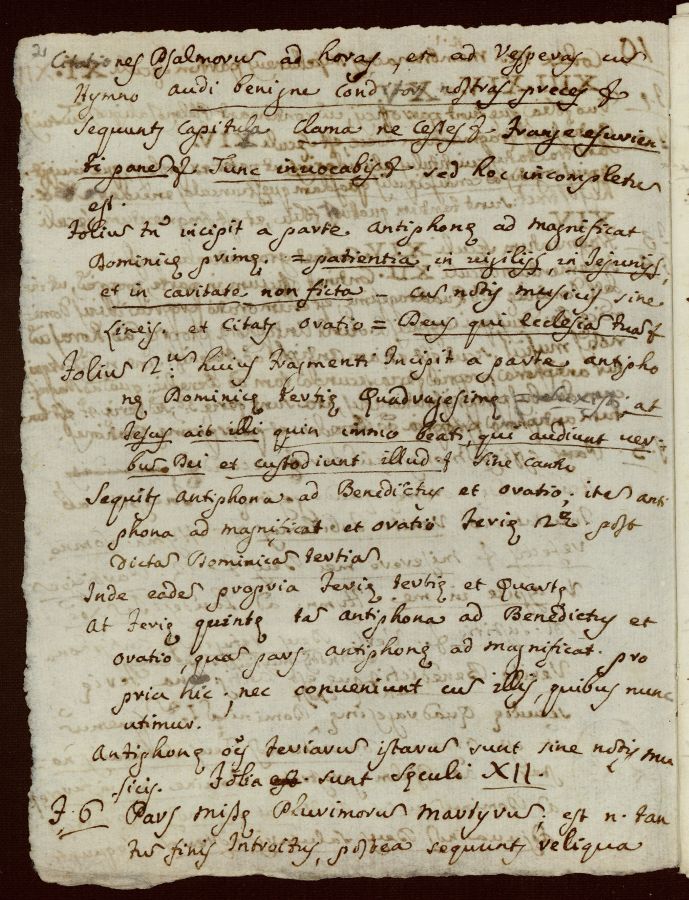 2
Citationes Psalmorus ad horas, et ad Vesperas cus
Hymno audi benigne Conditor nostras preces &
Sequunts Capitula Clama ne Cesses & frange esurien-
ti panes & Tunc invocabis & sed hoc incompletus
est.
folius tn incipit a parte Antiphonę ad Magnificat
Dominicę primę, = patientia, in vigilijs, in Jejunijs,
et in caritate non ficta = cus notis musicis sine
Lineis. et Citats oratio = Deus qui Ecclesias tuas &
folius 2us huius fragmenti Incipit a parte antipho
nę Dominicę tertię Quadragesimę = at
Jesus ait illi quin immo beati, qui audiunt ver-
bus Dei et custodiunt illud & sine cantu
Sequits antiphona ad Benedictus et oratio, ites anti
phona ad magnificat et oratio ferię 2ę post
dictas Dominicas tertias
Inde eades propria ferię tertię et Quartę
At ferię quintę tas antiphona ad Benedictus et
oratio, quas pars antiphonę ad magnificat. pro
pria hic, nec conveniunt cus illis, quibus nunc
utimur.
Antiphonę oēs feriarus istarus sunt sine notis mu
sicis. folia est sunt Sęculi XII.
F. 6 Pars missę Plurimorus martyrus: est n. tan
tus finis Introitus, postea sequunts reliqua